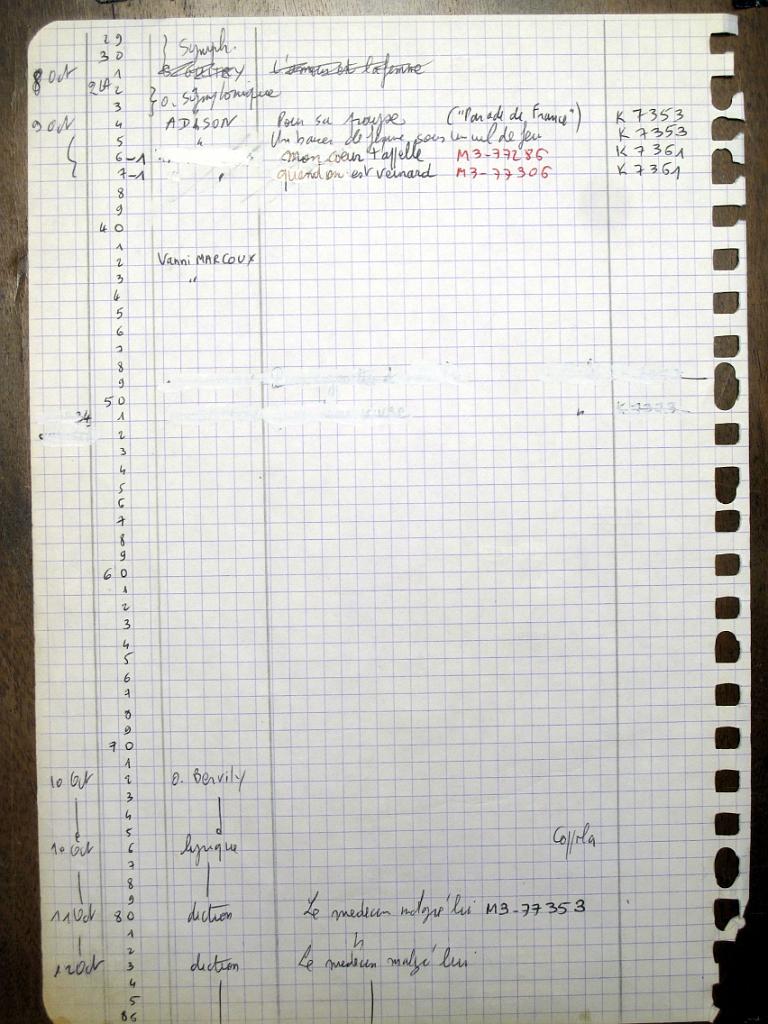 29 } Symph.
30
8 Oct 1 L'amour et la femme
2 } O. Symphonique
3
9 Oct 4 ADISON Pour sa troupe ("Parade de France") K 7353
5 " Un baiser de femme sous un ciel de feu K 7353
6-1 " mon coeur t'appelle M3-77286 K 7361
7-1 " quand on est veinard M3-77306 K 7361
8
9
40
1
2 Vanni MARCOUX
3 "
4
5
6
7
8
9
50
1 " K 7373
2
3
4
5
6
7
8
9
60
1
2
3
4
5
6
7
8
9
70
1
10 Oct 2 O. Bervily
3
4
5
10 Oct 6 lyrique Coppola
7
8
9
11 Oct 80 diction Le medecin malgré lui M3-77353
1
2
12 Oct 3 diction Le medecin malgré lui
4
5
86